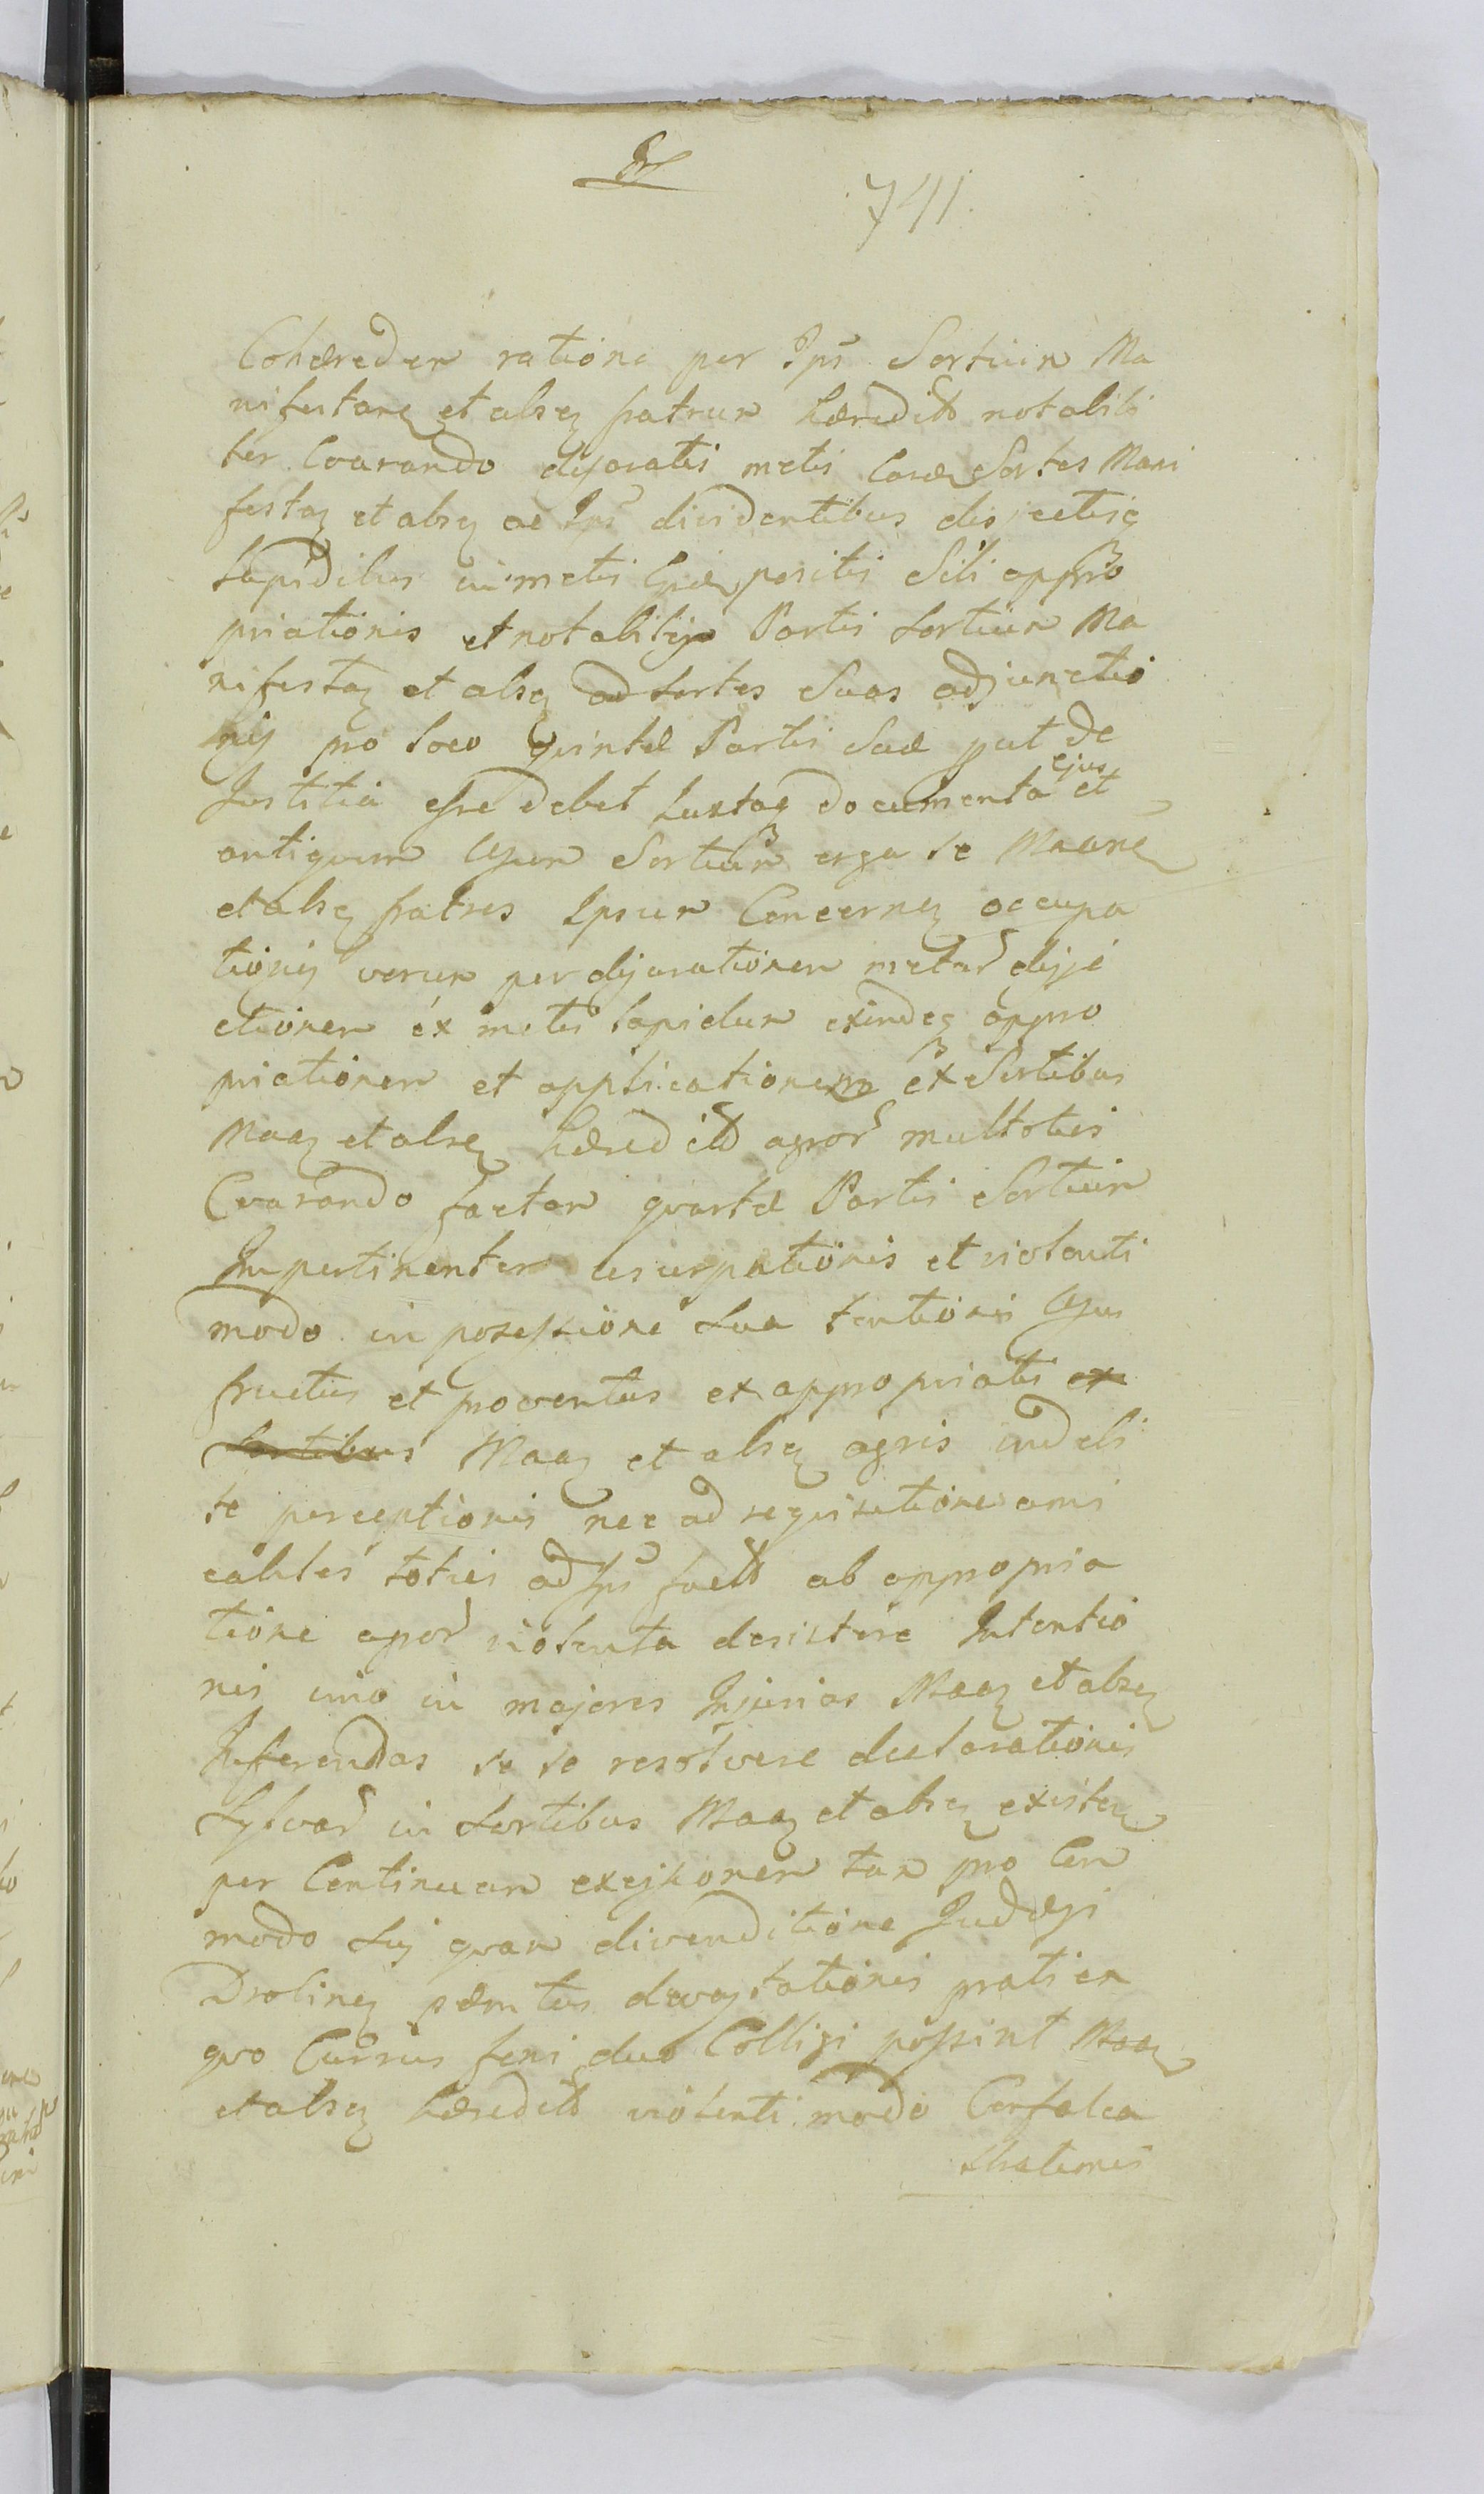 741
Cohæredem ratione per Ips Sortium Ma
nifestanz et alsz fratrum hæredit notabili
ter Coarando disparatis metis Sortes Mani
festaz et alsz ac Ips dividentibus disjectisq
Lapidibus in metis positis Sibi appro
priationis et notabilis Partis Sortium Ma
nifestaz et alsz ad Sortes Suas adjunctio
nis pro loco quintæ Partis Suæ put de
Justitia esse debet Juxtaq documenta ejus et
antiquum Usum Sortium erga se
et alsz fratres Ipsum Concernen occupa
tionis verum per disparationem metar disje
ctionem ex metis lapidum exindeq appro
priationem et applicationem ex Sortibus
Maaz et alsz hæredit agror multoties
Coarando factam quartæ Partis Sortium
Impertinenter usurpationis et violenti
modo in possessione Sua tentionis Usus
fructus et proventus ex appropriatis ex
Sortibus Maaz et alsz agris indebi
te perceptionis nec ad requisitiones ami
cabiles toties ad Ips fact ab appropria
tione agror violenta desistere Intentio
nis imo in majores Injurias Maaz et alsz
Inferendas se se resolvere declarationis
Sylvar in Sortibus Maaz et alsz existen
per Continuam excisionem tam pro Com
modo Sui quam divenditione
penitus devastationis prati ex
quo Currus feni duo Colligi possint Maaz
et alsz hæredit violenti modo Confalca
strationis